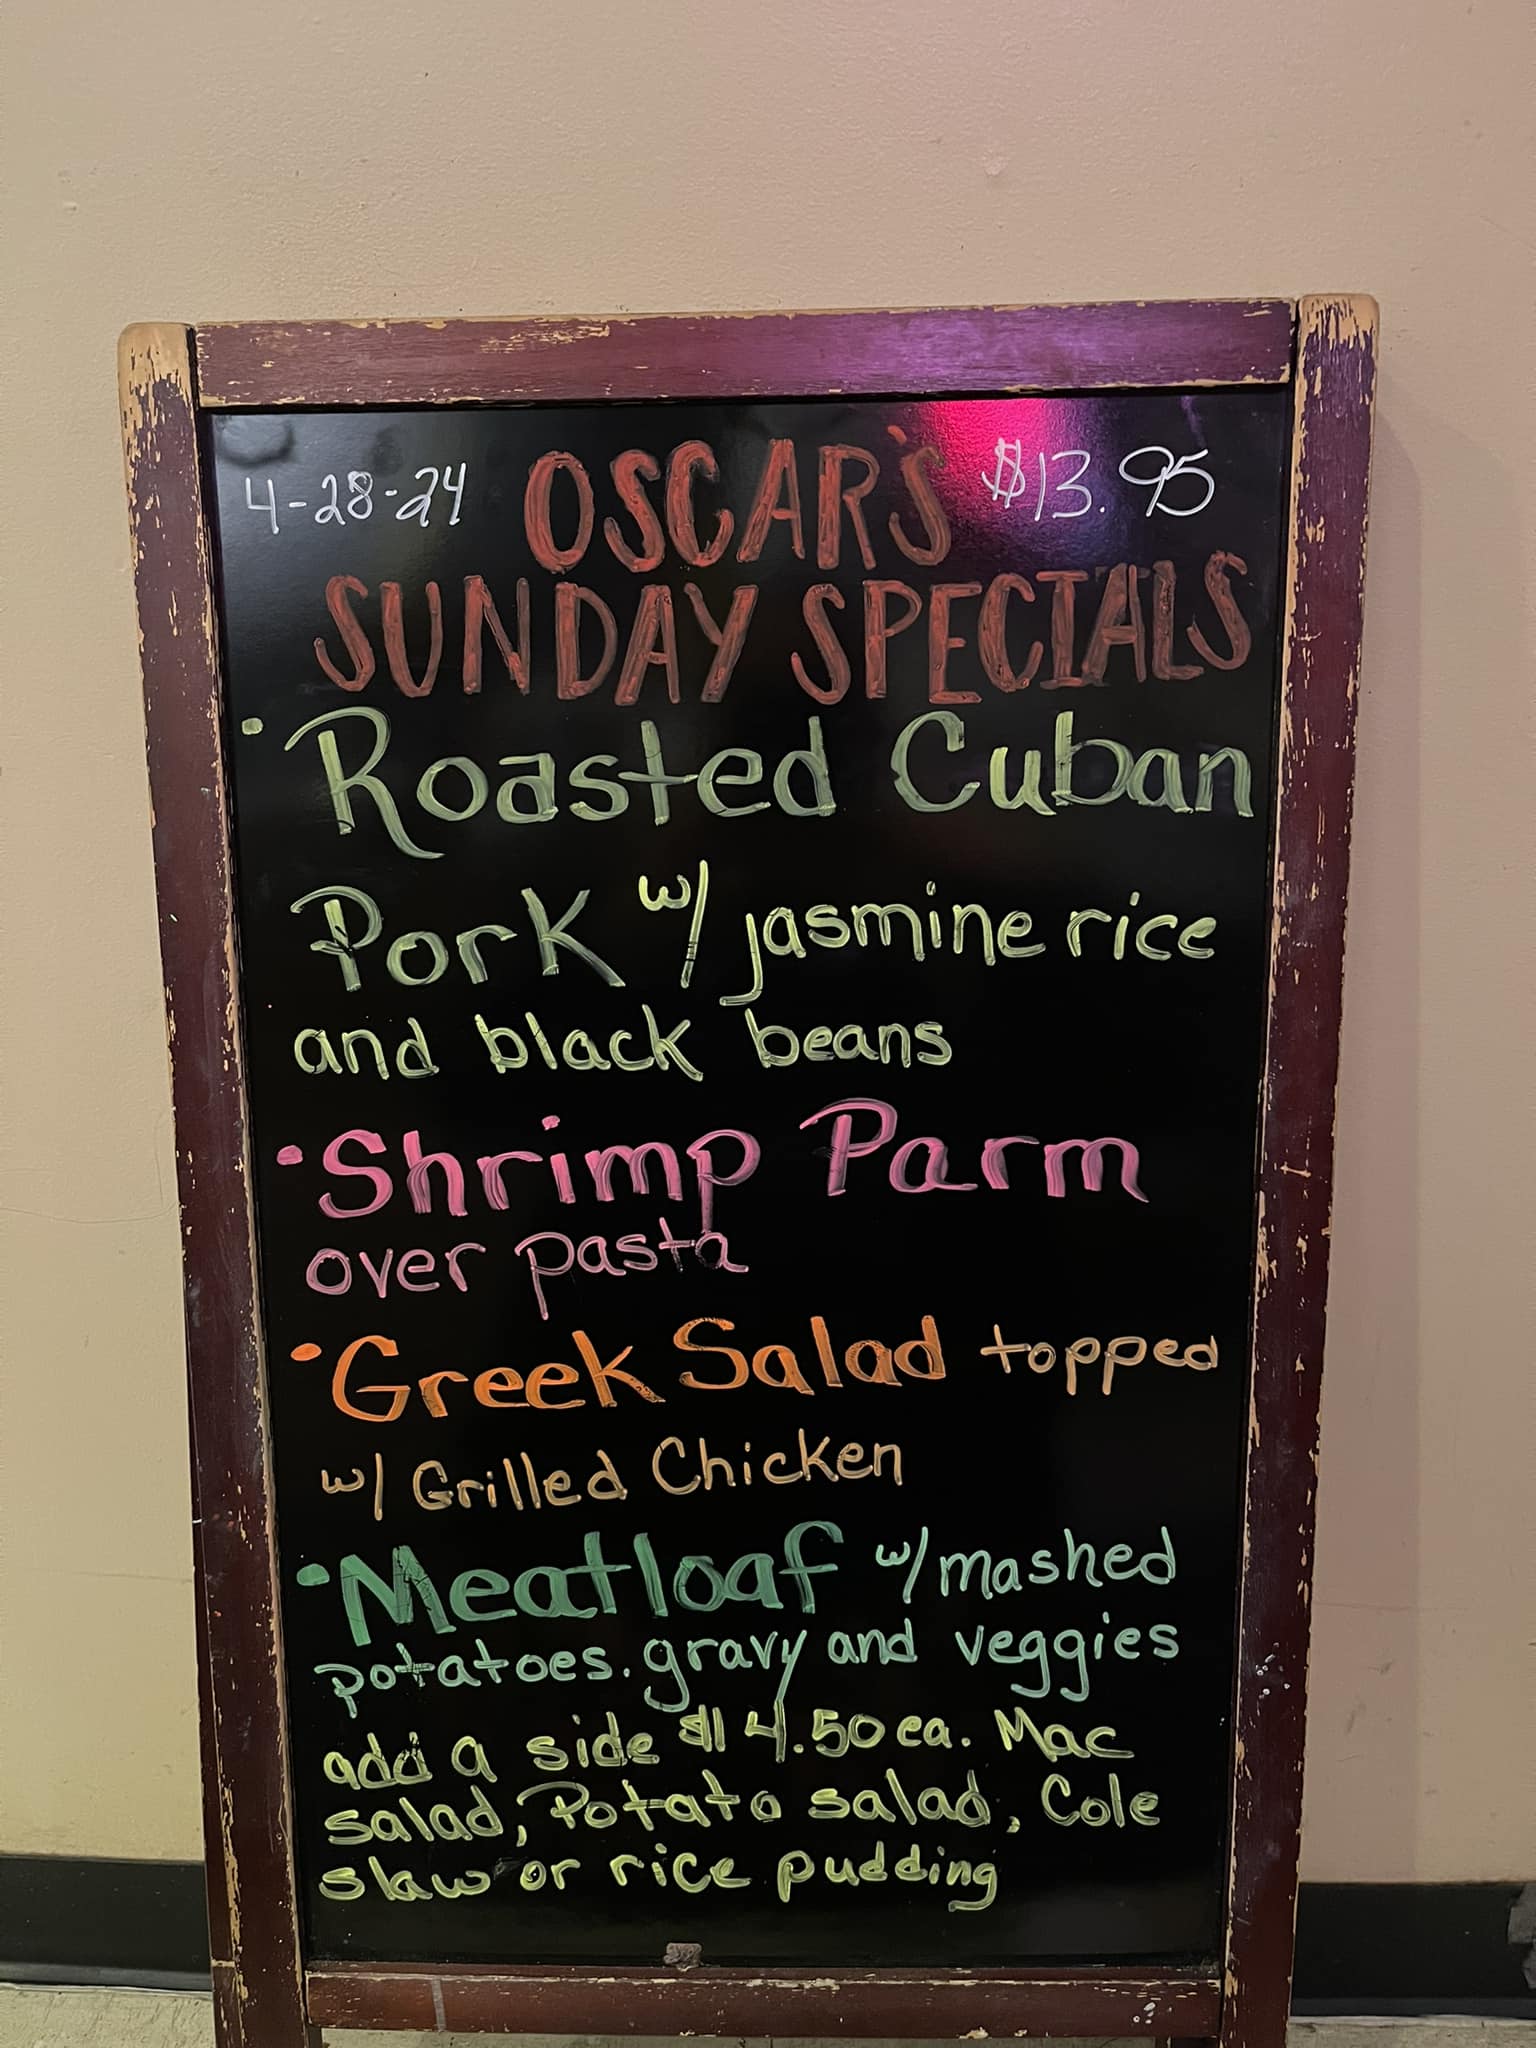 4-28-24 OSCAR'S $13.95
SUNDAY SPECIALS
• Roasted Cuban
Pork w/ jasmine rice
and black beans
• Shrimp Parm
over pasta
• Greek Salad topped
w/ Grilled Chicken
• Meatloaf w/ mashed
potatoes. gravy and veggies
add a side $4.50 ea. Mac
salad, Potato salad, Cole
slaw or rice pudding